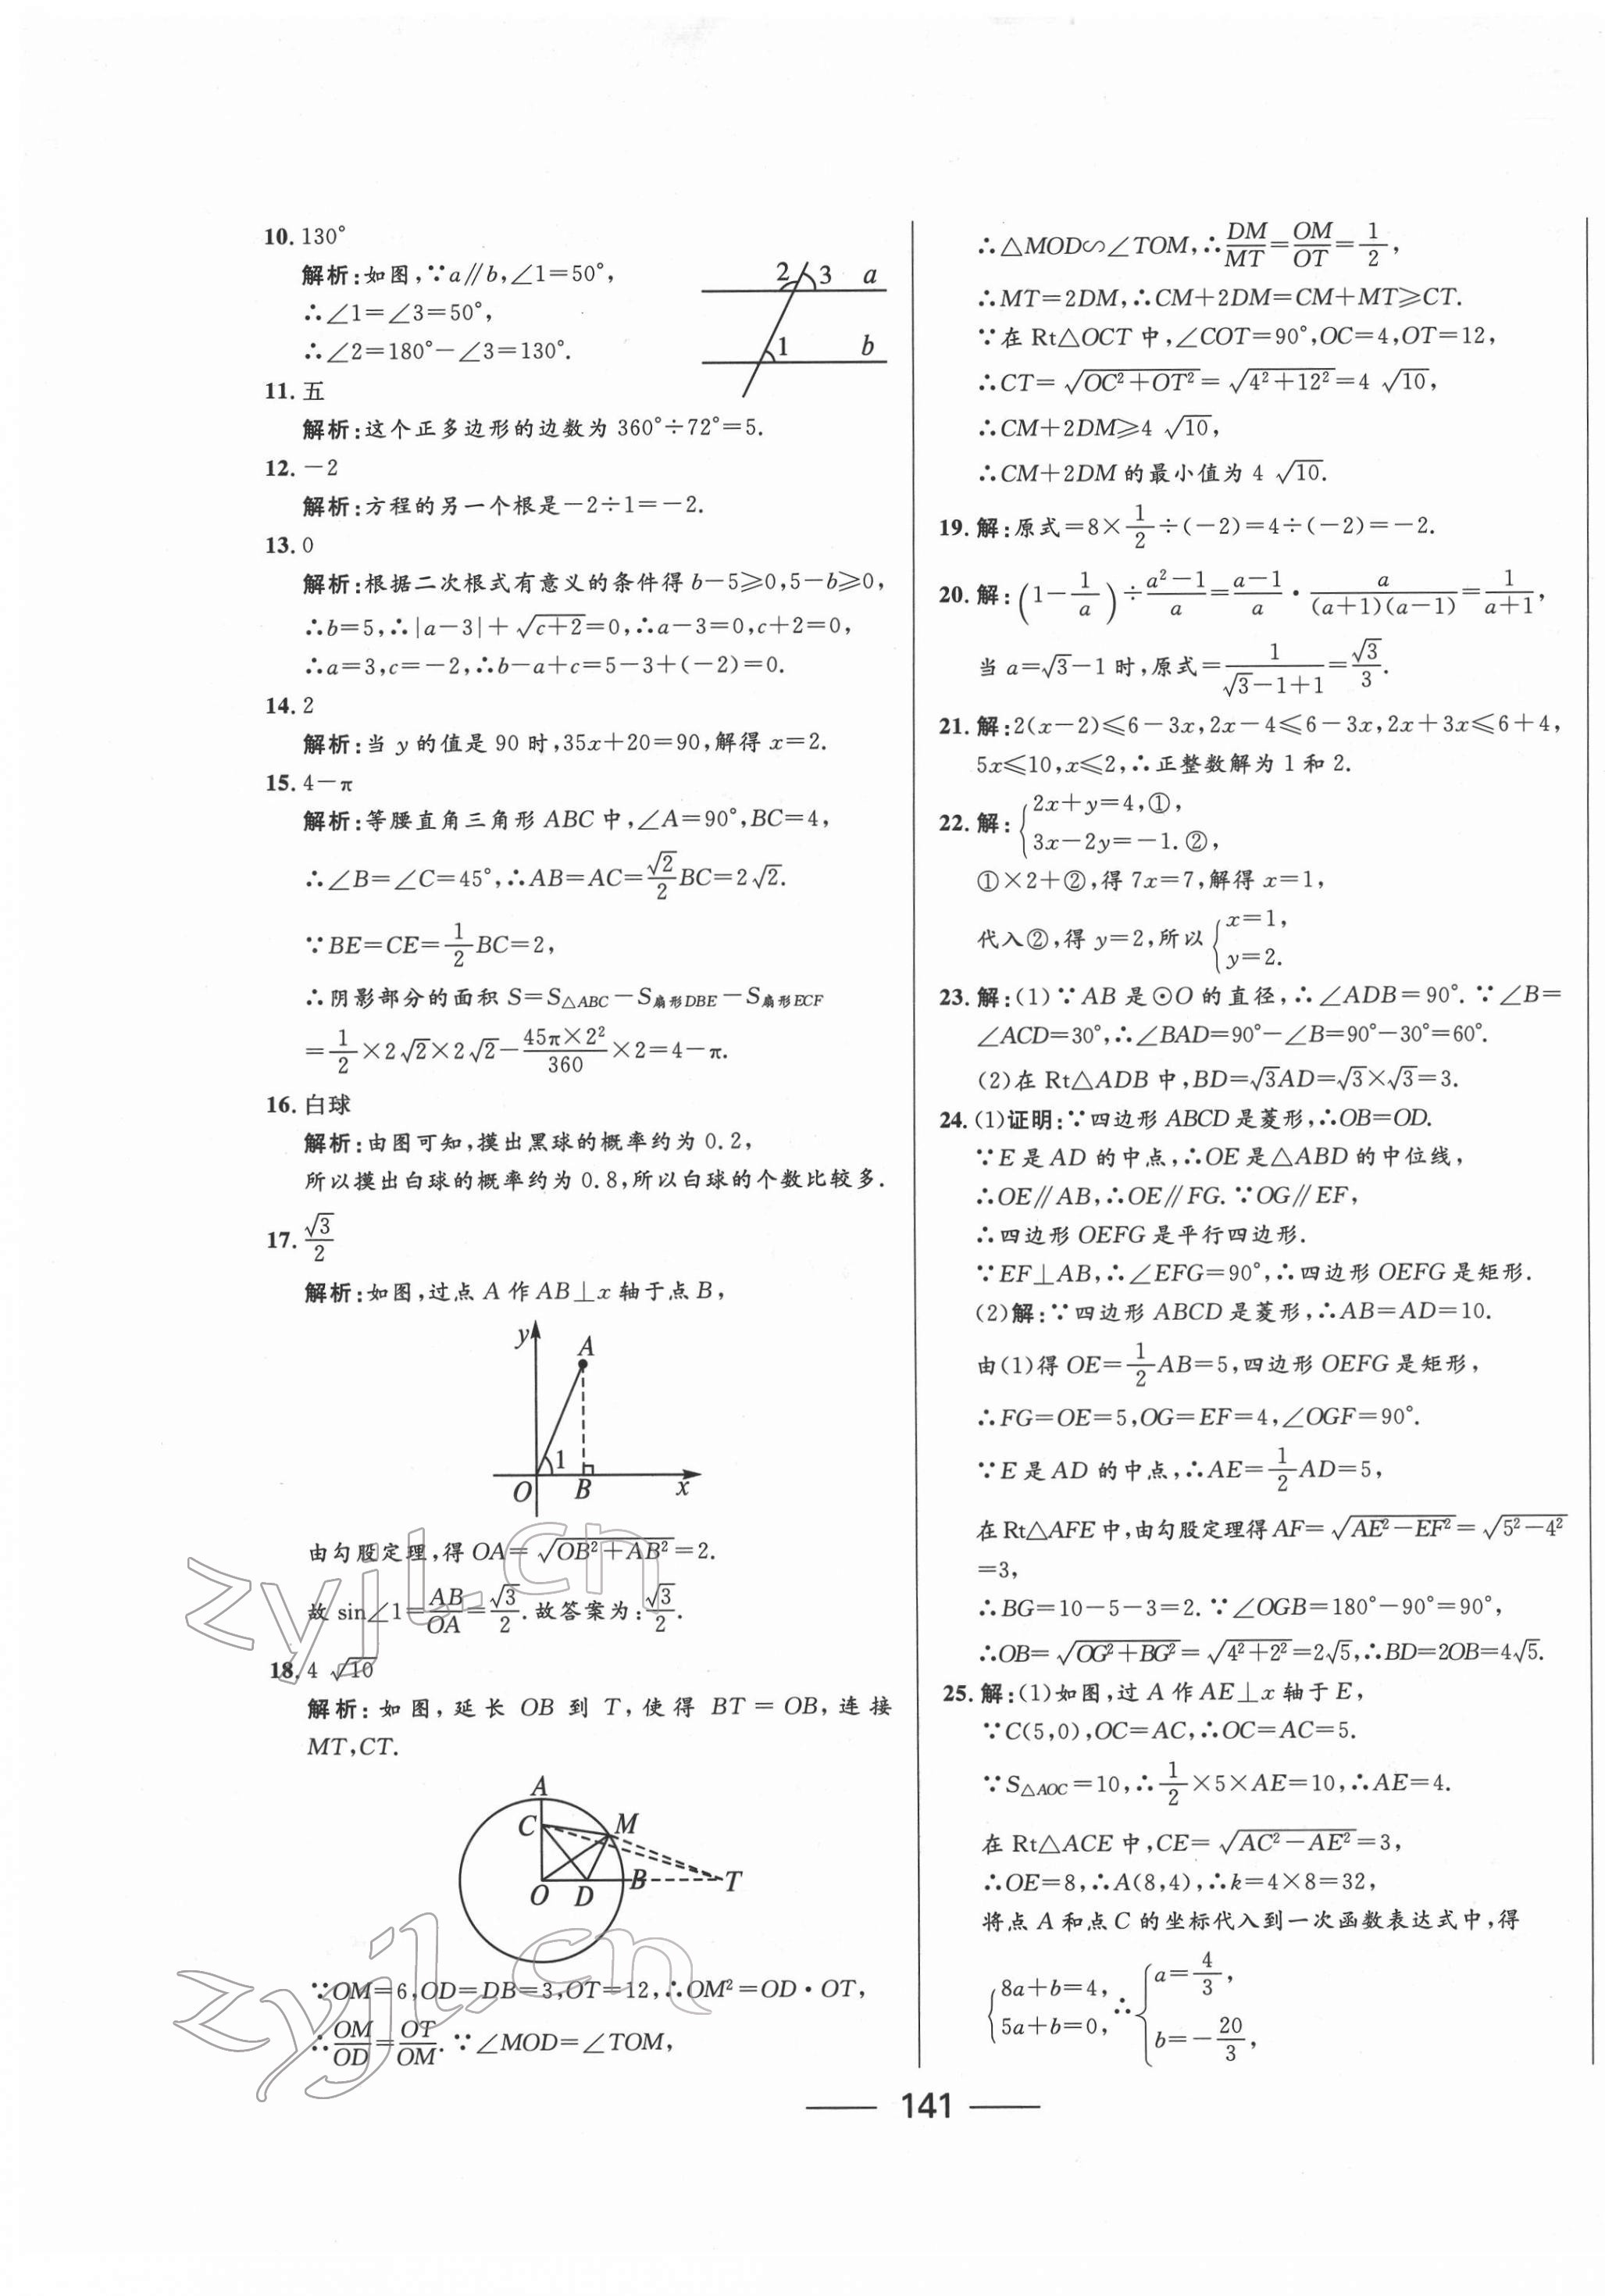 10. 130°
解析:如图,∵a∥b,∠1=50°,
∴∠1=∠3=50°,
∴∠2=180°-∠3=130°.
2 3 a
1 b
11. 五
解析:这个正多边形的边数为 360°÷72°=5.
12. -2
解析:方程的另一个根是-2÷1=-2.
13. 0
解析:根据二次根式有意义的条件得 b-5≥0,5-b≥0,
∴b=5,∴|a-3|+√(c+2)=0,∴a-3=0,c+2=0,
∴a=3,c=-2,∴b-a+c=5-3+(-2)=0.
14. 2
解析:当 y 的值是 90 时,35x+20=90,解得 x=2.
15. 4-π
解析:等腰直角三角形 ABC 中,∠A=90°,BC=4,
∴∠B=∠C=45°,∴AB=AC=√2/2 BC=2√2.
∵BE=CE=1/2 BC=2,
∴阴影部分的面积 S=S△ABC-S扇形DBE-S扇形ECF
=1/2×2√2×2√2-45π×2²/360×2=4-π.
16. 白球
解析:由图可知,摸出黑球的概率约为 0.2,
所以摸出白球的概率约为 0.8,所以白球的个数比较多.
17. √3/2
解析:如图,过点 A 作 AB⊥x 轴于点 B,
y A
1
O B x
由勾股定理,得 OA=√(OB²+AB²)=2.
故 sin∠1=AB/OA=√3/2.故答案为:√3/2.
18. 4√10
解析:如图,延长 OB 到 T,使得 BT=OB,连接
MT,CT.
A
C M
O D B T
∵OM=6,OD=DB=3,OT=12,∴OM²=OD·OT,
∴OM/OD=OT/OM.∵∠MOD=∠TOM,
∴△MOD∽∠TOM,∴DM/MT=OM/OT=1/2,
∴MT=2DM,∴CM+2DM=CM+MT≥CT.
∵在 Rt△OCT 中,∠COT=90°,OC=4,OT=12,
∴CT=√(OC²+OT²)=√(4²+12²)=4√10,
∴CM+2DM≥4√10,
∴CM+2DM 的最小值为 4√10.
19. 解:原式=8×1/2÷(-2)=4÷(-2)=-2.
20. 解:(1-1/a)÷(a²-1)/a=(a-1)/a·a/((a+1)(a-1))=1/(a+1),
当 a=√3-1 时,原式=1/(√3-1+1)=√3/3.
21. 解:2(x-2)≤6-3x,2x-4≤6-3x,2x+3x≤6+4,
5x≤10,x≤2,∴正整数解为 1 和 2.
22. 解:{2x+y=4,①,
3x-2y=-1.②,
①×2+②,得 7x=7,解得 x=1,
代入②,得 y=2,所以{x=1,
y=2.
23. 解:(1)∵AB 是⊙O 的直径,∴∠ADB=90°.∵∠B=
∠ACD=30°,∴∠BAD=90°-∠B=90°-30°=60°.
(2)在 Rt△ADB 中,BD=√3AD=√3×√3=3.
24. (1)证明:∵四边形 ABCD 是菱形,∴OB=OD.
∵E 是 AD 的中点,∴OE 是△ABD 的中位线,
∴OE∥AB,∴OE∥FG.∵OG∥EF,
∴四边形 OEFG 是平行四边形.
∵EF⊥AB,∴∠EFG=90°,∴四边形 OEFG 是矩形.
(2)解:∵四边形 ABCD 是菱形,∴AB=AD=10.
由(1)得 OE=1/2 AB=5,四边形 OEFG 是矩形,
∴FG=OE=5,OG=EF=4,∠OGF=90°.
∵E 是 AD 的中点,∴AE=1/2 AD=5,
在 Rt△AFE 中,由勾股定理得 AF=√(AE²-EF²)=√(5²-4²)
=3,
∴BG=10-5-3=2.∵∠OGB=180°-90°=90°,
∴OB=√(OG²+BG²)=√(4²+2²)=2√5,∴BD=2OB=4√5.
25. 解:(1)如图,过 A 作 AE⊥x 轴于 E,
∵C(5,0),OC=AC,∴OC=AC=5.
∵S△AOC=10,∴1/2×5×AE=10,∴AE=4.
在 Rt△ACE 中,CE=√(AC²-AE²)=3,
∴OE=8,∴A(8,4),∴k=4×8=32,
将点 A 和点 C 的坐标代入到一次函数表达式中,得
{8a+b=4, 5a+b=0, ∴{a=4/3, b=-20/3,
141
zyjl.cn
zyjl.cn